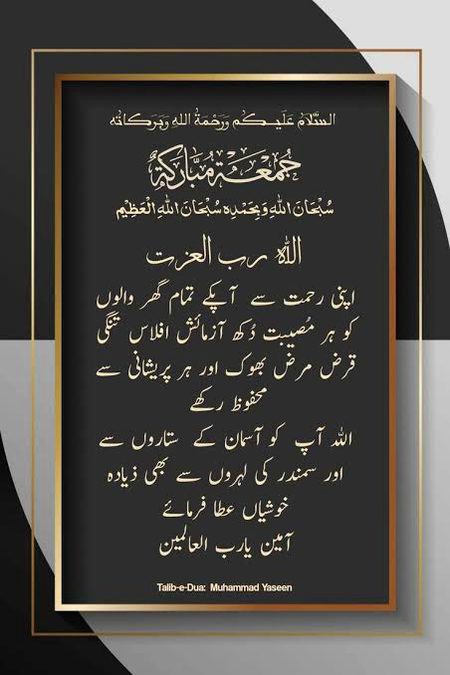 السَّلَامُ عَلَيْكُم وَرَحْمَةُ اللهِ وَبَرَكَاتُه
جُمُعَةٌ مُبَارَكَةٌ
سُبْحَانَ اللهِ وَبِحَمْدِهِ سُبْحَانَ اللهِ الْعَظِيْمِ
اللہ رب العزت
اپنی رحمت سے آپکے تمام گھر والوں
کو ہر مُصیبت دُکھ آزمائش افلاس تنگی
قرض مرض بھوک اور ہر پریشانی سے
محفوظ رکھے
اللہ آپ کو آسمان کے ستاروں سے
اور سمندر کی لہروں سے بھی ذیادہ
خوشیاں عطا فرمائے
آمین یارب العالمین
Talib-e-Dua: Muhammad Yaseen